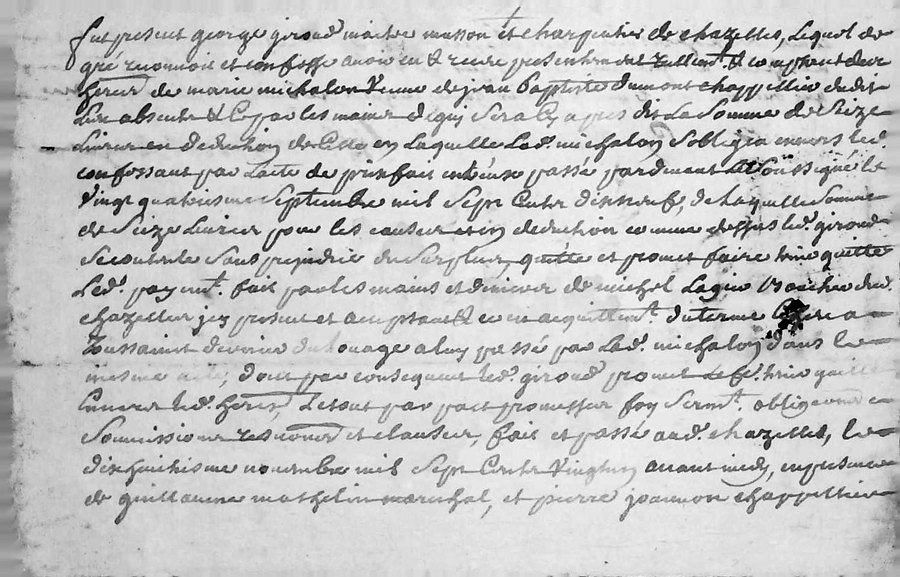 fut present george giroud maitre masson et charpentier de chazelles, Lequel de
gre reconnois et confesse avoir eu & receu presentement reellemt. & comptant des
hoirs de marie michalon veuve de jean Baptiste dumont chappellier dudit
Lieu absents & Ce par les mains de qui Sera Cy apres dit La Somme de Seize
Livres en deduction de Celle en laquelle lad. michalon Sobligea envers led.
confessant par Lacte de prixfait entreux passé pardevant Le Soussigné le
vingt quatriesme Septembre mil Sept Cents dixneuf, de laquelle Somme
de Seize Livres pour les causes et en deduction comme dessus led. giroud
Se contente Sans prejudice du Surplus, quitte et promet faire tenir quitte
Led. payemt. fait par les mains et deniers de michel Lagier
chazelles icy present et acceptant & ce en acquittemt. du terme a
Toussaint dernier du Louage a luy passé par Lad. michalon dans le
mesme acte, dont par consequent led. giroud promet Le fe. tenir quitte
Envers lesd. hoirs Le tout par pact promesses foy Sermt. obligeons
Soumissions renoncons et clauses, fait et passé aud. chazelles, le
dixhuictiesme novembre mil Sept Cents Vingt un avant midy, en presence
de guillaume mathelin mareschal, et pierre joannon chappellier